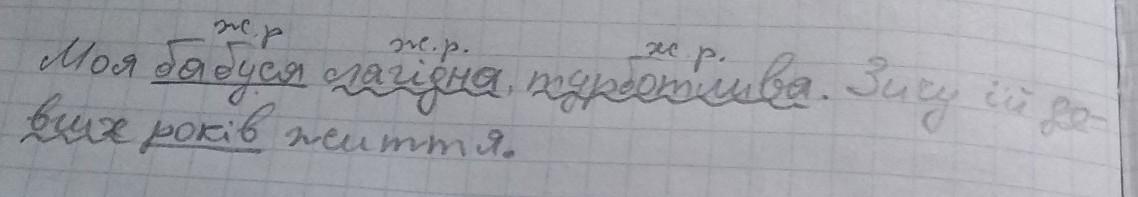 ж.р ж.р. ж.р.
Моя бабуся лагідна, турботлива. Зичу їй до-
вгих років життя.